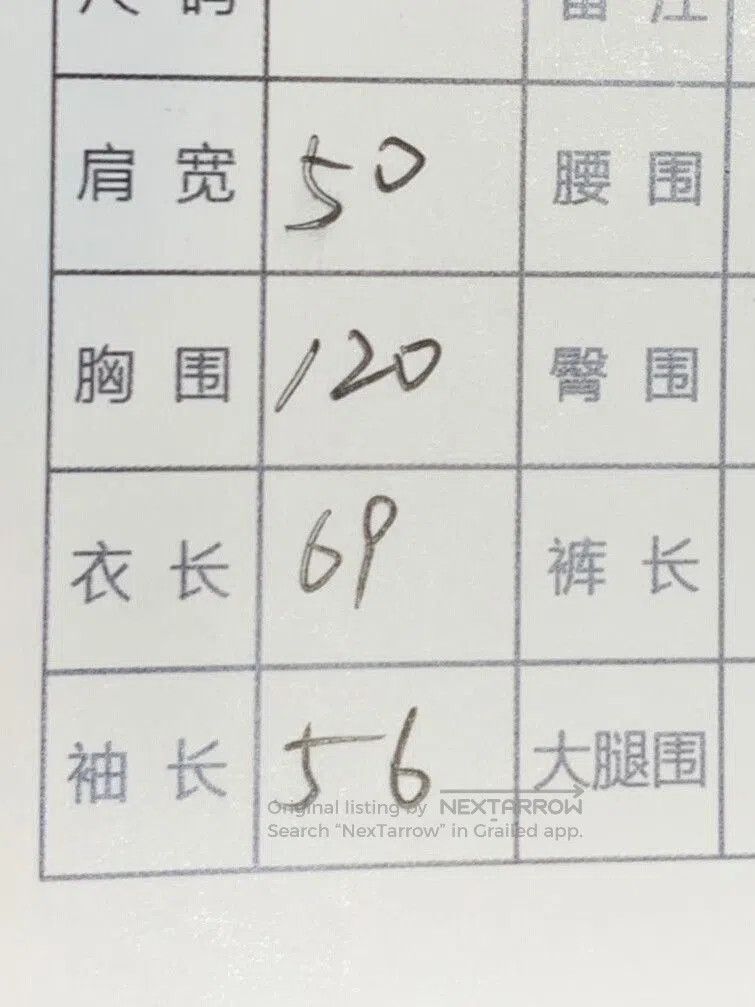 尺 码 备 注
肩 宽 50 腰 围
胸 围 120 臀 围
衣 长 69 裤 长
袖 长 56 大腿围
Original listing by NEXTARROW
Search “NexTarrow” in Grailed app.